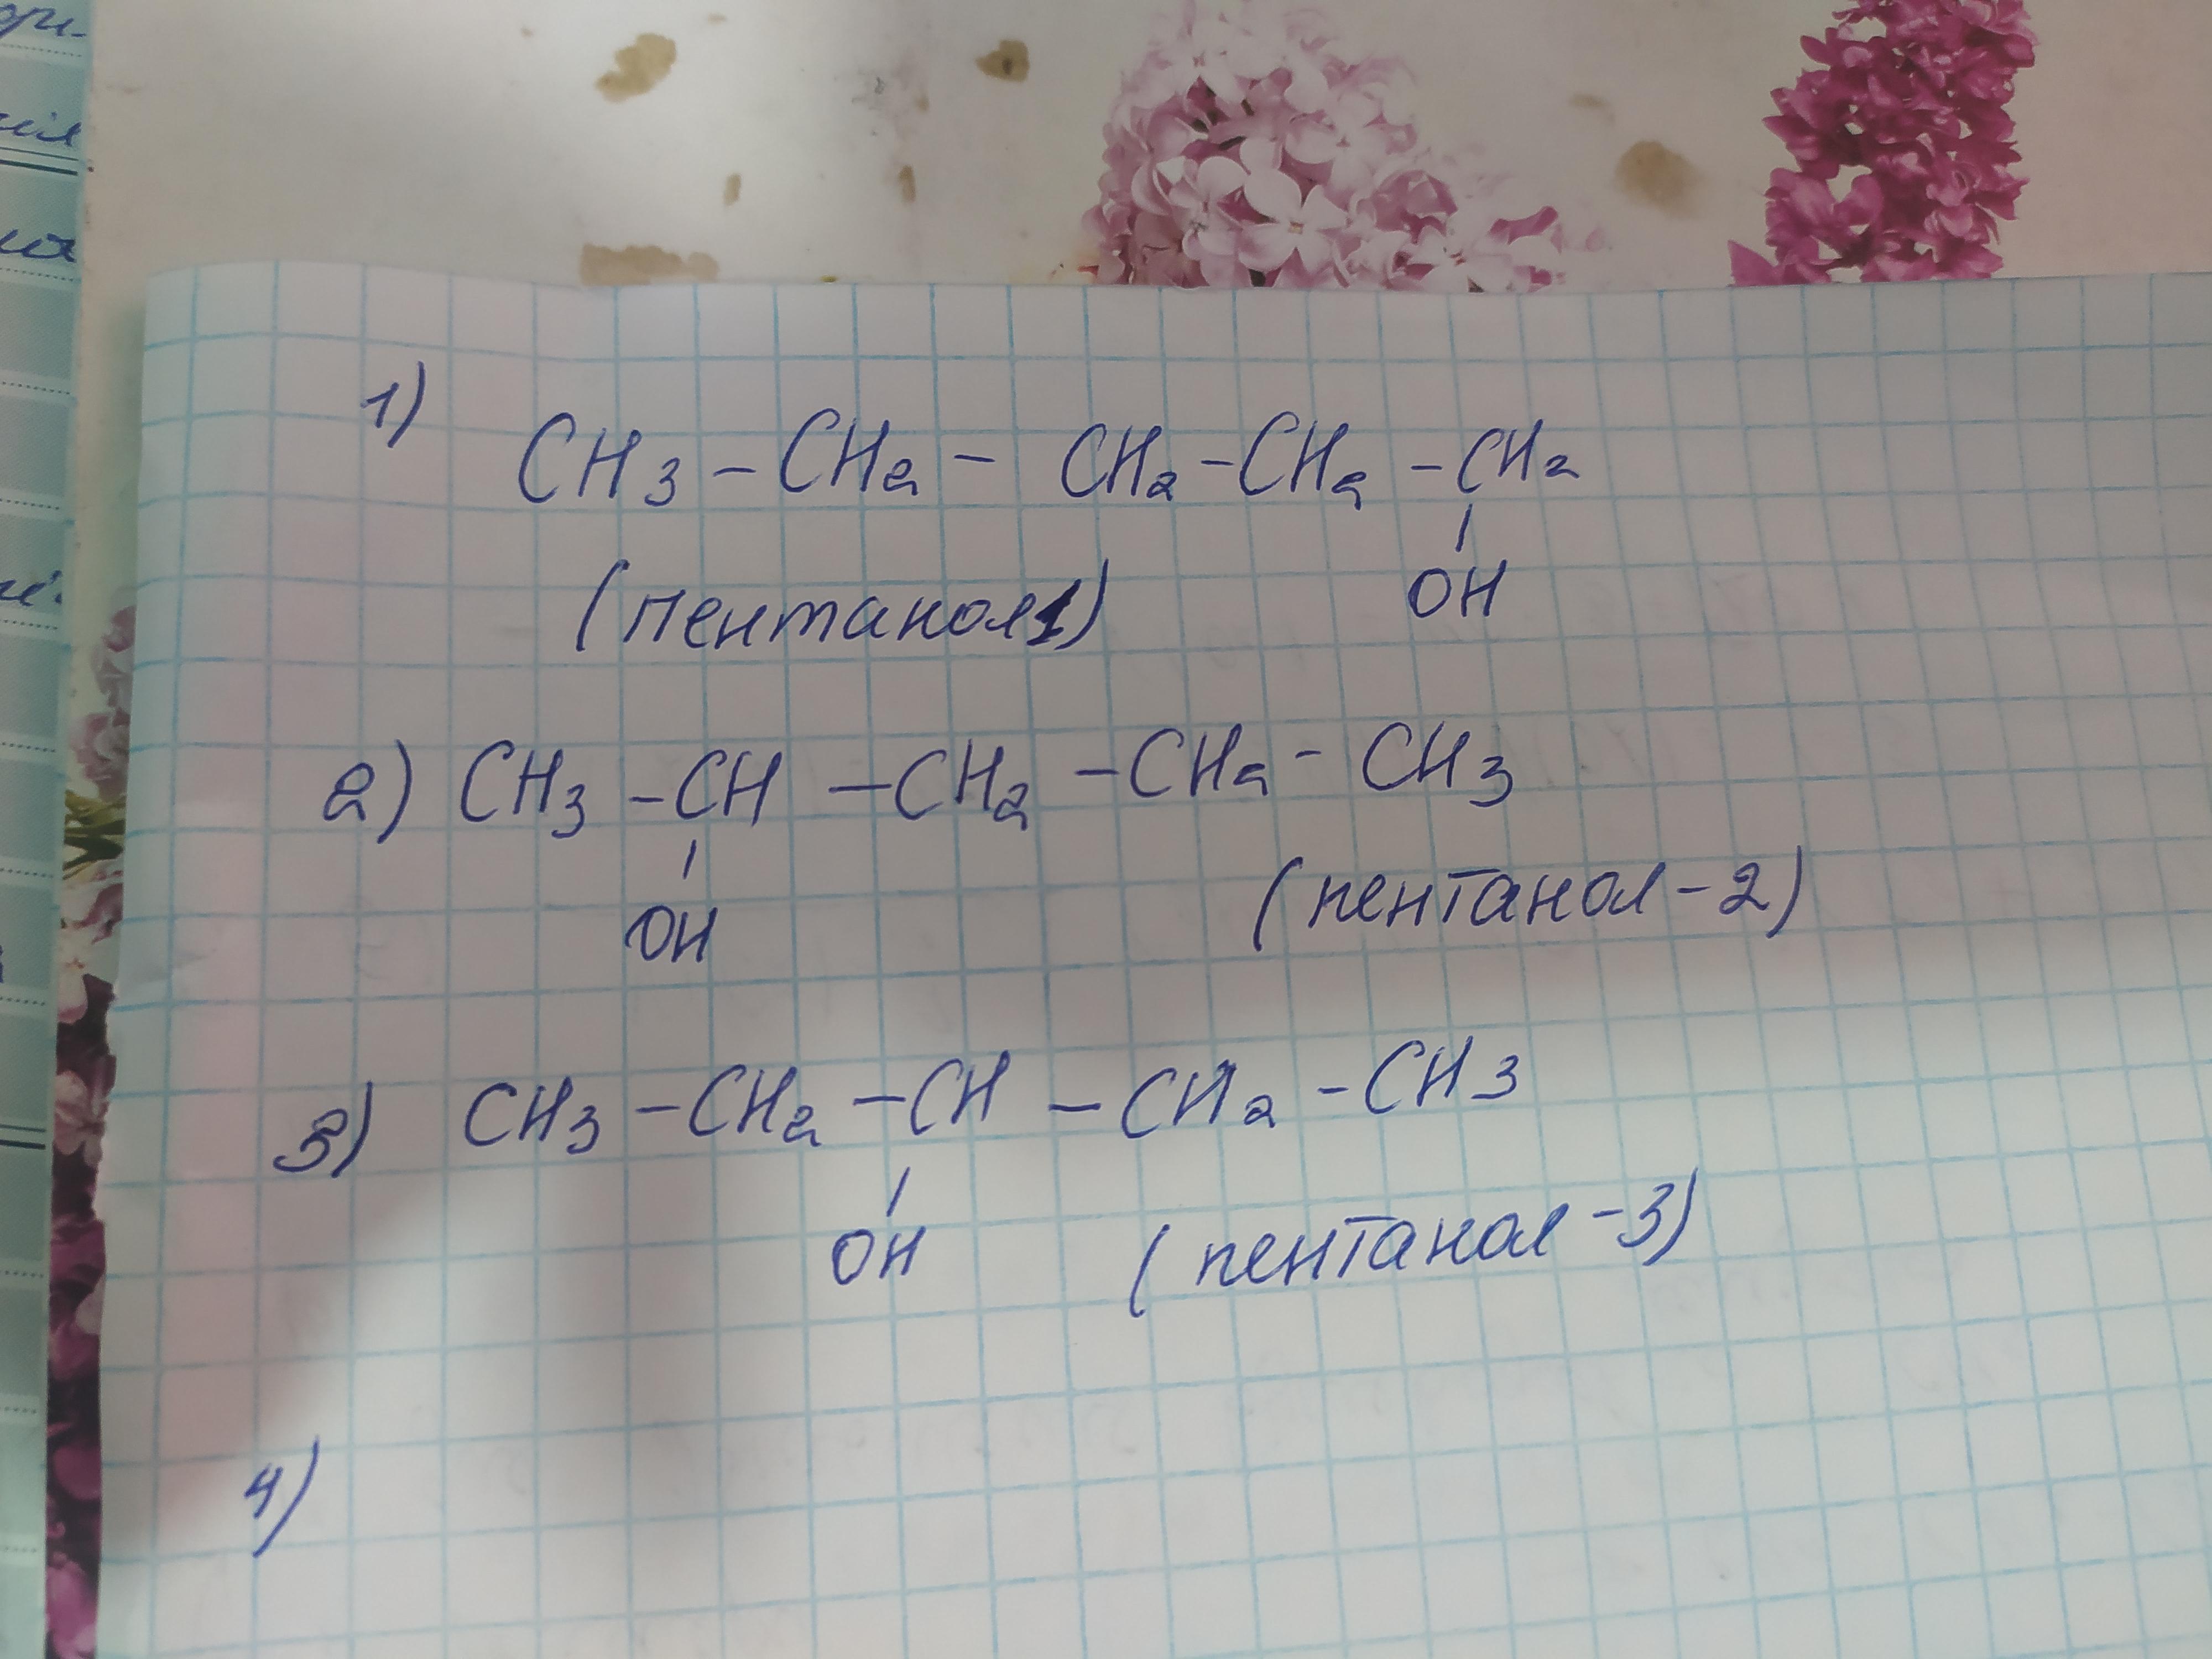 1) CH3 – CH2 – CH2 – CH2 – CH2
OH
(пентанол1)
2) CH3 – CH – CH2 – CH2 – CH3
OH
(пентанол – 2)
3) CH3 – CH2 – CH – CH2 – CH3
OH
(пентанол – 3)
4)